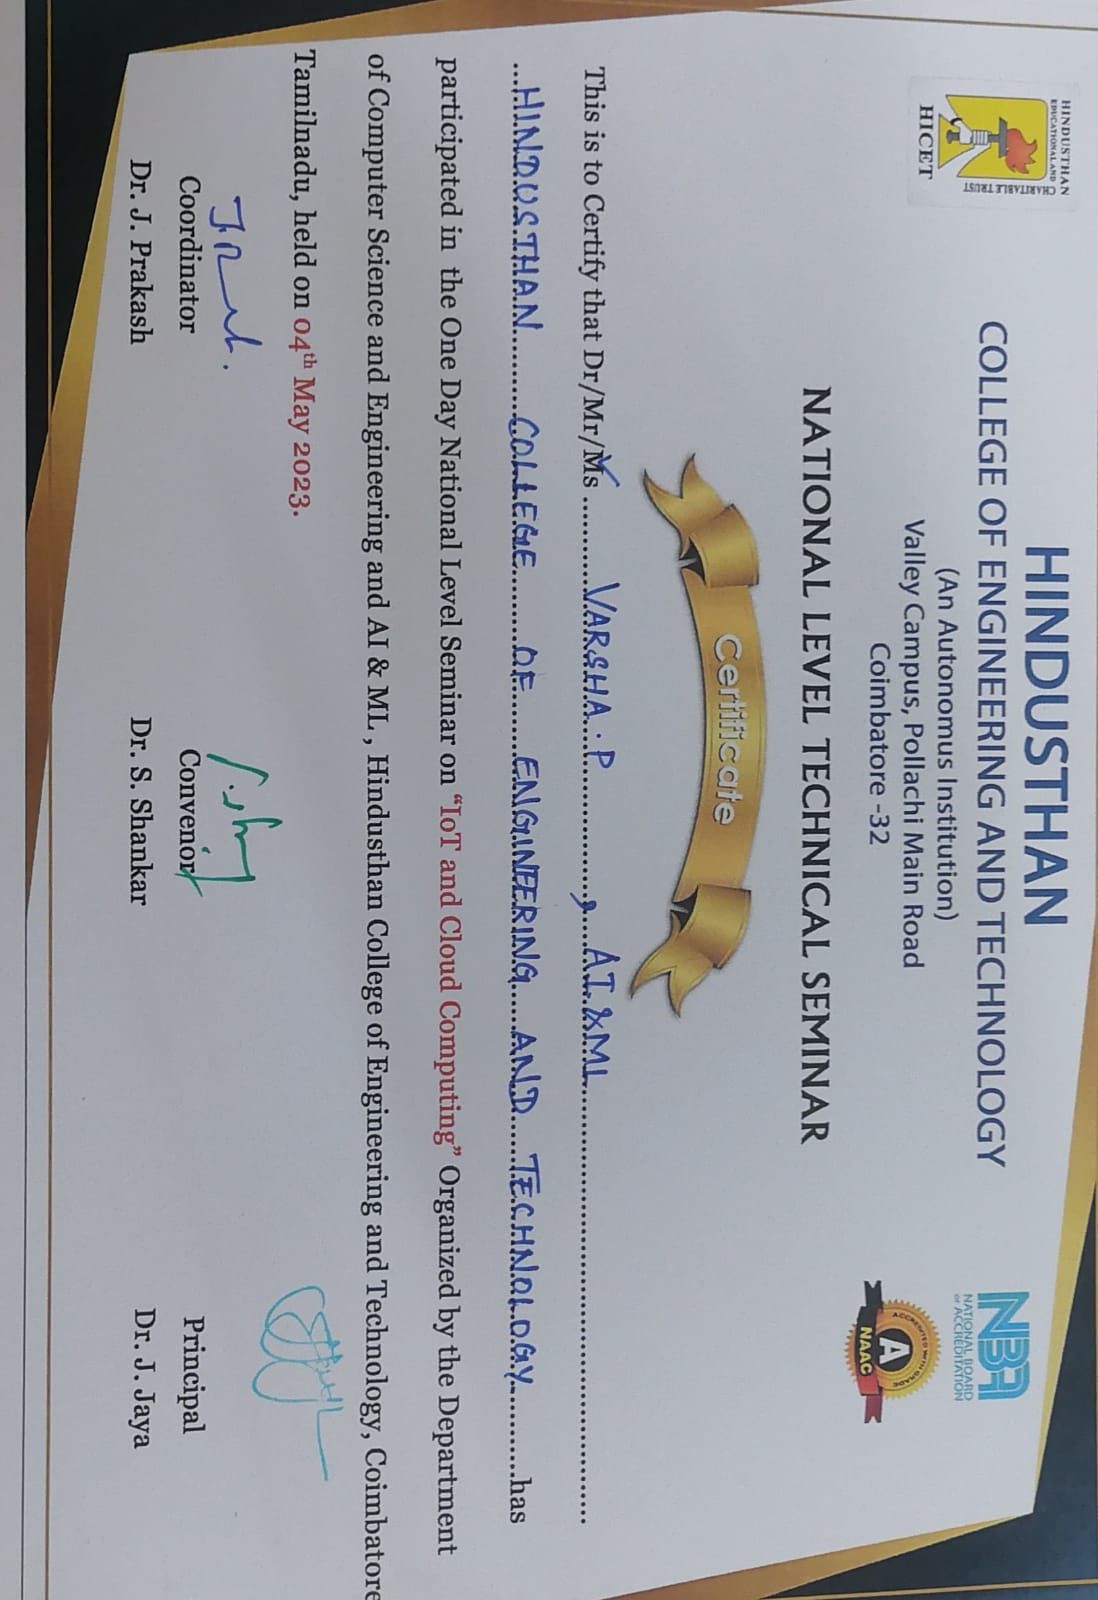 HINDUSTHAN
EDUCATIONAL AND
CHARITABLE TRUST
HICET
HINDUSTHAN
COLLEGE OF ENGINEERING AND TECHNOLOGY
(An Autonomus Institution)
Valley Campus, Pollachi Main Road
Coimbatore -32
NBA
NATIONAL BOARD
of ACCREDITATION
ACCREDITED WITH GRADE
A
NAAC
NATIONAL LEVEL TECHNICAL SEMINAR
Certificate
This is to Certify that Dr/Mr/Ms ...........VARSHA.P................, ....AI.&ML.....................................................
...HINDUSTHAN.........COLLEGE........OF.......ENGINEERING.....AND.....TECHNOLOGY...........has
participated in the One Day National Level Seminar on “IoT and Cloud Computing” Organized by the Department
of Computer Science and Engineering and AI & ML , Hindusthan College of Engineering and Technology, Coimbatore
Tamilnadu, held on 04th May 2023.
Coordinator
Dr. J. Prakash
Convenor
Dr. S. Shankar
Principal
Dr. J. Jaya